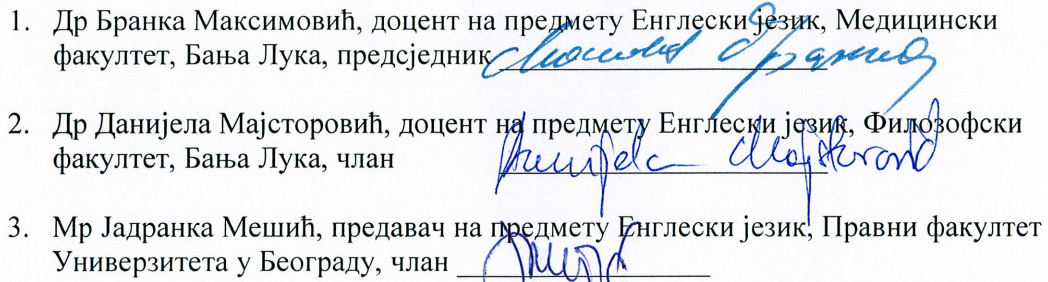 1. Др Бранка Максимовић, доцент на предмету Енглески језик, Медицински
факултет, Бања Лука, предсједник
2. Др Данијела Мајсторовић, доцент на предмету Енглески језик, Филозофски
факултет, Бања Лука, члан Danijela Majstorović
3. Мр Јадранка Мешић, предавач на предмету Енглески језик, Правни факултет
Универзитета у Београду, члан